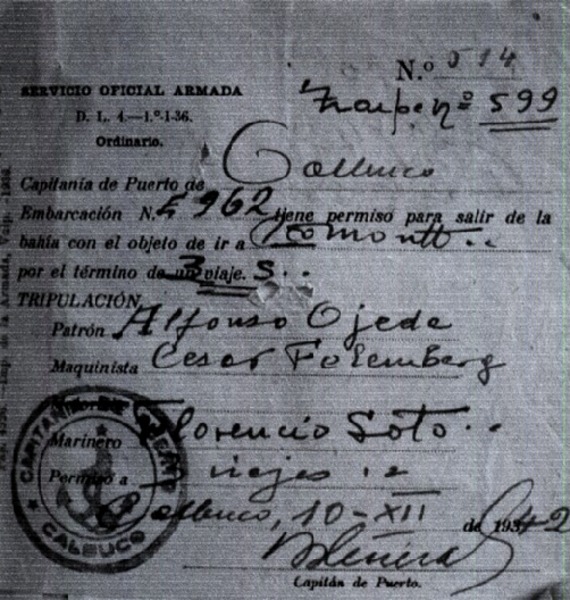 N.º 514
SERVICIO OFICIAL ARMADA
Zarpe nº 599
D. L. 4.—1.º-1-36.
Ordinario.
Capitanía de Puerto de Calbuco
Embarcación N. 962 tiene permiso para salir de la
bahía con el objeto de ir a Pto montt..
por el término de 3 viaje. s..
TRIPULACIÓN
Patrón Alfonso Ojeda
Maquinista Cesar
Marinero Florencio Soto..
Permiso a viajes
Calbuco, 10-XII de 1942
Capitán de Puerto.
CAPITANIA DE PUERTO
CALBUCO